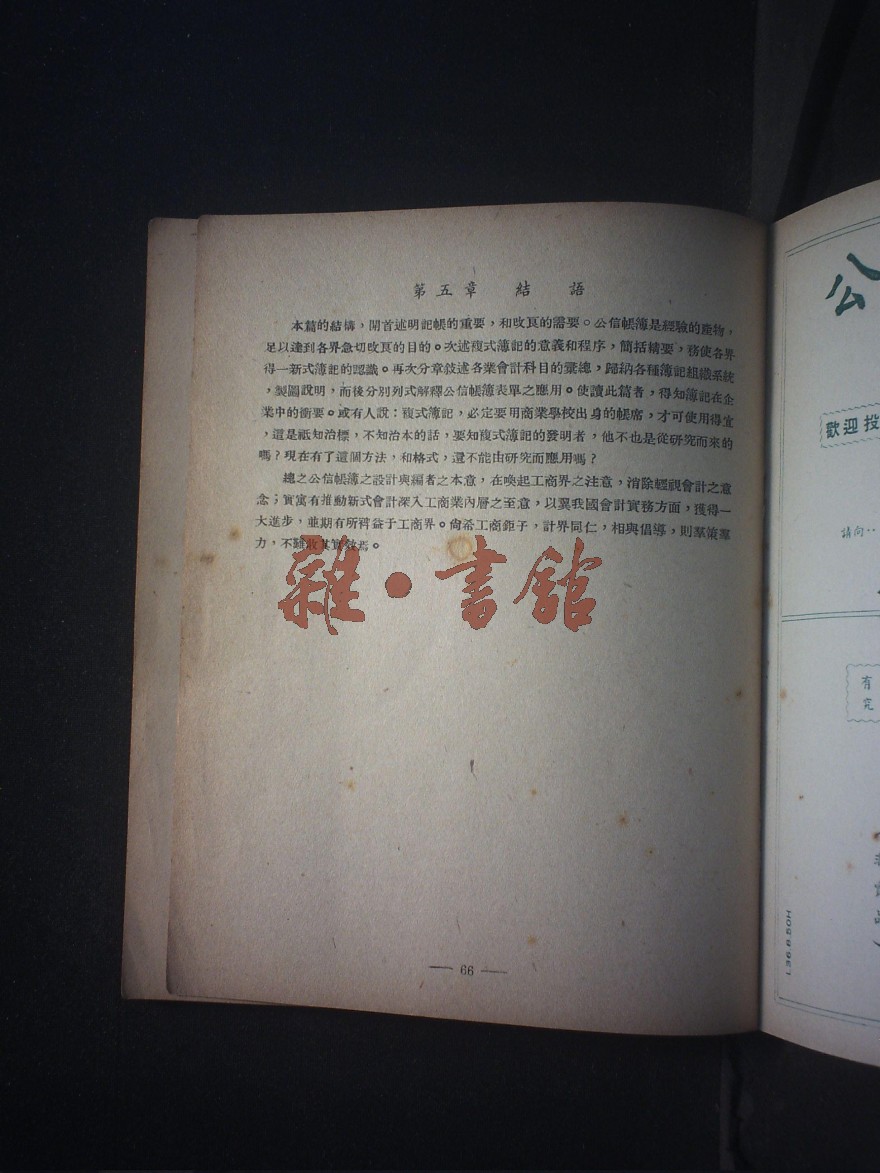 第五章 結語
本篇的結構，開首述明記帳的重要，和改良的需要。公信帳簿是經驗的產物，
足以達到各界急切改良的目的。次述複式簿記的意義和程序，簡括精要，務使各界
得一新式簿記的認識。再次分章敍述各業會計科目的彙總，歸納各種簿記組織系統
，製圖說明，而後分別列式解釋公信帳簿表單之應用。使讀此篇者，得知簿記在企
業中的衝要。或有人說：複式簿記，必定要用商業學校出身的帳席，才可使用得宜
，這是祗知治標，不知治本的話，要知複式簿記的發明者，他不也是從研究而來的
嗎？現在有了這個方法，和格式，還不能由研究而應用嗎？
總之公信帳簿之設計與編者之本意，在喚起工商界之注意，消除輕視會計之意
念；實寓有推動新式會計深入工商業內層之至意，以冀我國會計實務方面，獲得一
大進步，並期有所裨益于工商界。尙希工商鉅子，計界同仁，相與倡導，則羣策羣
力，不難收其實效焉。
雜·書館
— 66 —
公
歡迎投
請向··
有
究
L36.6.50H